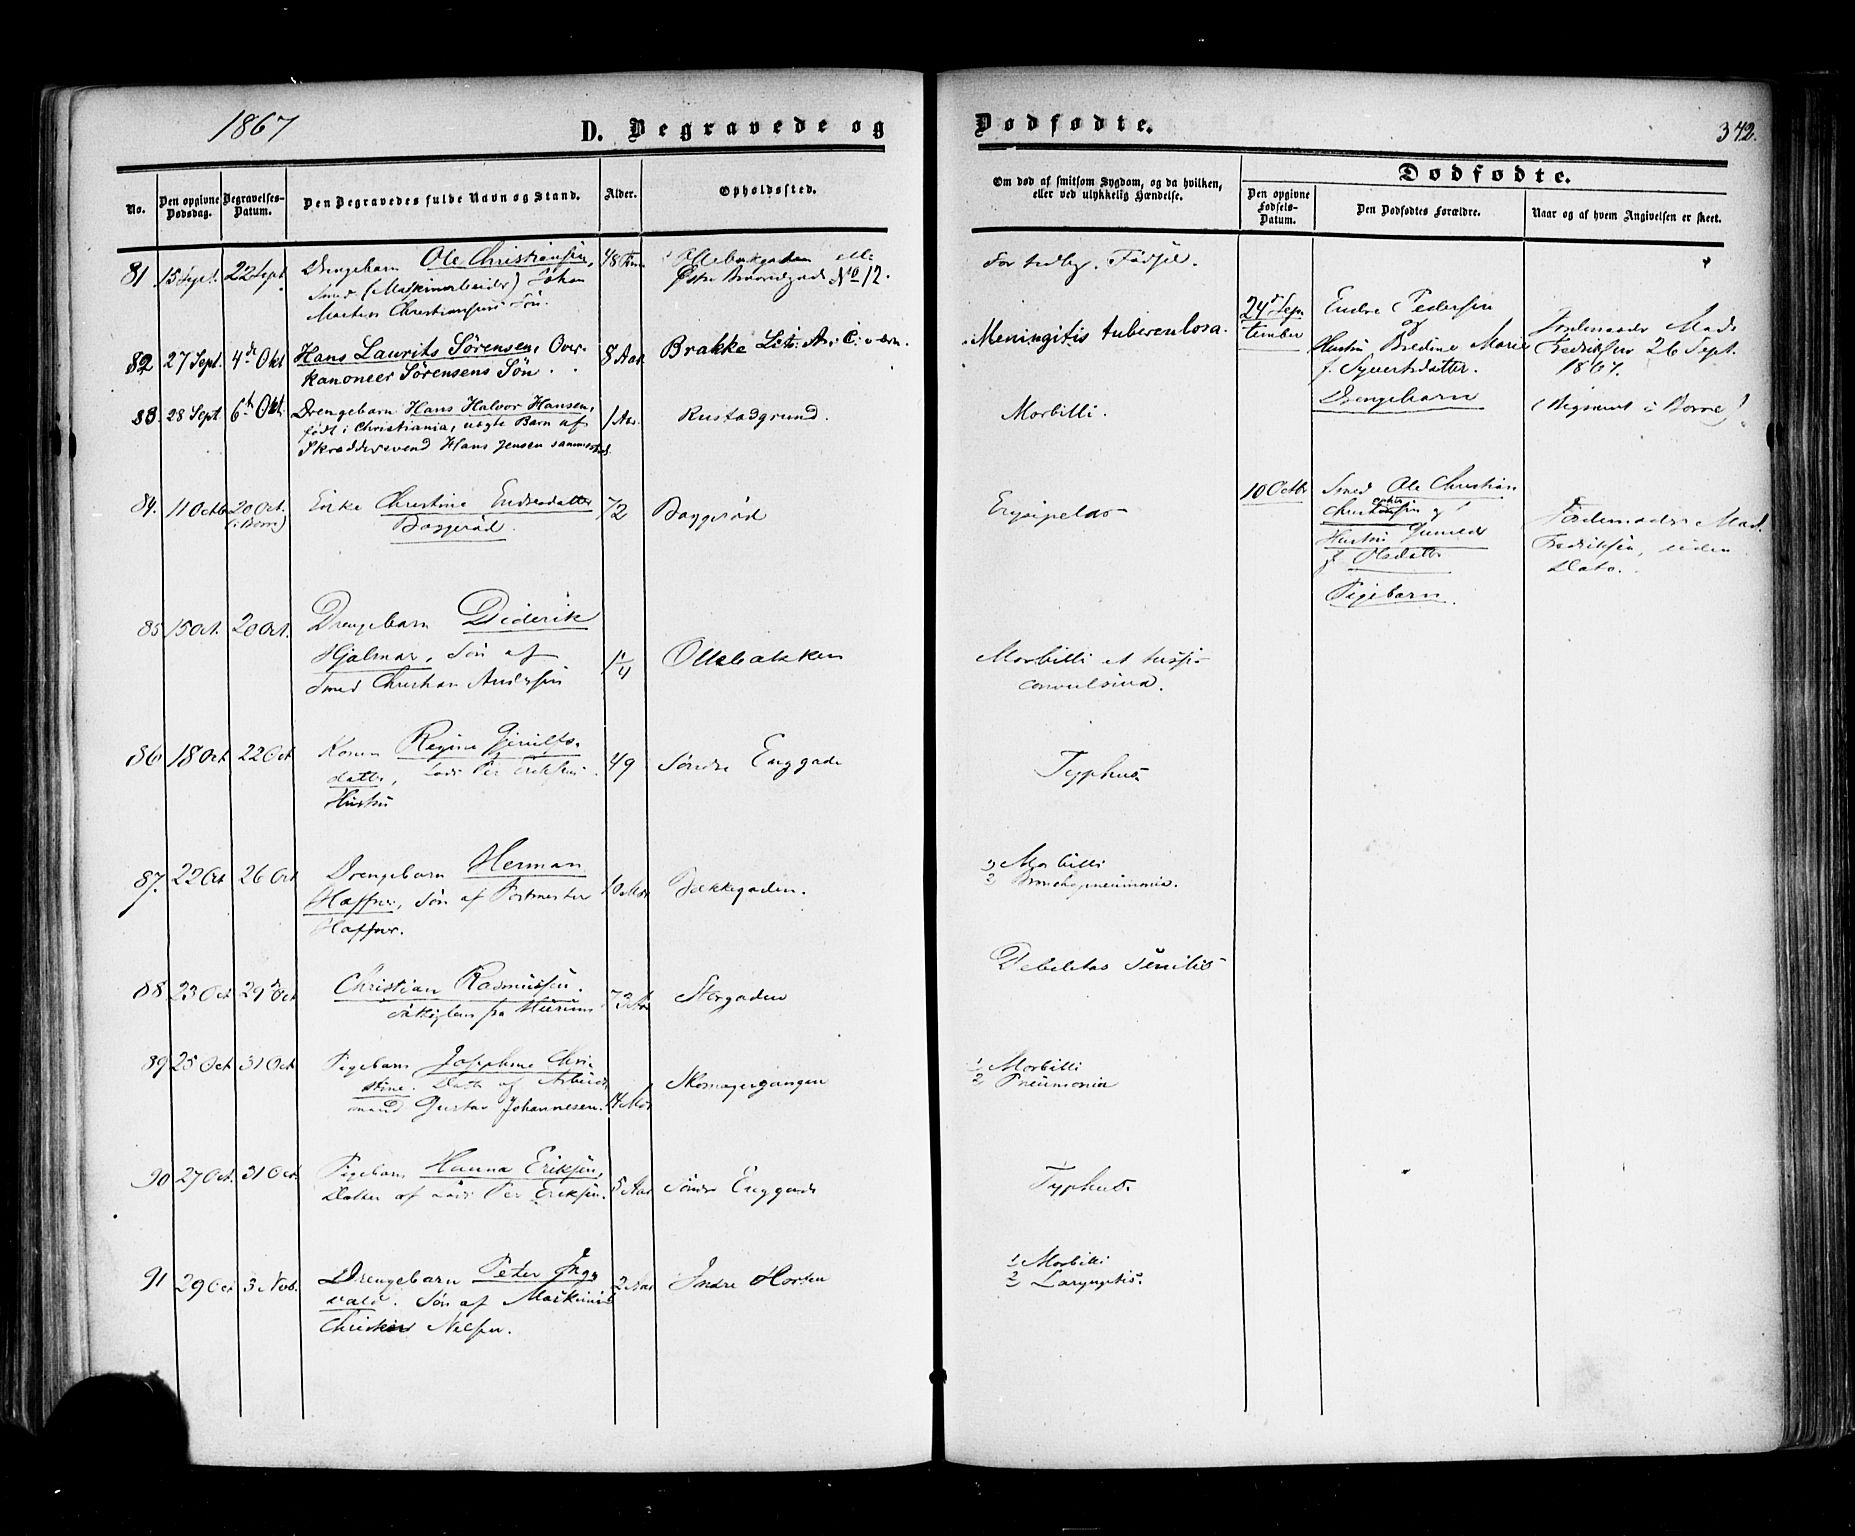 1867
D. Begravede og
Dødfødte.
342.
No.
Den opgivne Dødsdag.
Begravelses-Datum.
Den Begravedes fulde Navn og Stand.
Alder.
Opholdssted.
Om død af smitsom Sygdom, og da hvilken, eller ved ulykkelig Hændelse.
Dødfødte.
Den opgivne Fødsels-Datum.
Den Dødfødtes Forældre.
Naar og af hvem Angivelsen er skeet.
81 15 Sept. 22 Sept. Drengebarn Ole Christiansen, 48 Tim
Smed (Maskinarbeider) Johan
Martin Christiansens Søn.
No 12.
For tidlig Fødsel.
82 27 Sept. 4de Okt Hans Laurits Sørensen, Over-
kanoneer Sørensens Søn.
8 Aar Brakke Litr. A
Meningitis tuberculosa.
83. 28 Sept 6te Okt Drengebarn Hans Halvor Hansen,
født i Christiania, uægte Barn af
Skræddersvend Hans Jensen sammesteds
1 Aar Rustadgrund.
Morbilli.
84. 11 Octb 20 Oct. (i Borre) Enke Christine Endresdatter
Baggerød.
72 Baggerød
Erysipelas
85 15 Oct. 20 Oct. Drengebarn Diderik
Hjalmar, Søn af
Smed Christian Andersen
1/4 Ollebakken
Morbilli et tussis
convulsiva.
86 18 Oct 22 Oct Konen Regine
datter, Lods Per Eriksens
Hustru
49 Søndre Enggade
Typhus
87. 22 Oct 26 Oct Drengebarn Herman
Haffner, Søn af Postmester
Haffner.
10 Mdr Bakkegaden.
Morbilli
2 Bronchopneumonia.
88 23 Oct 29de Oct Christian Rasmussen.
fra Hurum
73 Aar Storgaden
Debilitas senilis
89 25 Oct 31 Oct Pigebarn Josephine Chri-
stine. Datter af Arbeids
mand Gustav Johannesen.
14 Mdr Skomagergangen
1 Morbilli
2 Pneumonia
90 27 Oct. 31 Oct. Pigebarn Hanna Eriksen,
Datter af Lods Per Eriksen.
5 Aar Søndre Enggade
Typhus.
91 29 Oct 3 Nov. Drengebarn Peter Ing-
vald. Søn af Maskinist
Christian Nilsen.
2 Aar Indre Horten
1 Morbilli
2 Laryngitis.
24de Sep-
tember
Endre Pedersen
og
Hustru Bredine Marie
f. Syvertsdatter.
Drengebarn
Jordemoder Mad.
Fredriksen 26 Sept.
1867.
(Begravet i Borre)!
10 Octbr Smed Ole Christian
Christensen og
Hustru
f. Olsdatter
Pigebarn.
Jordemoder Mad.
Fredriksen, uden
Dato.